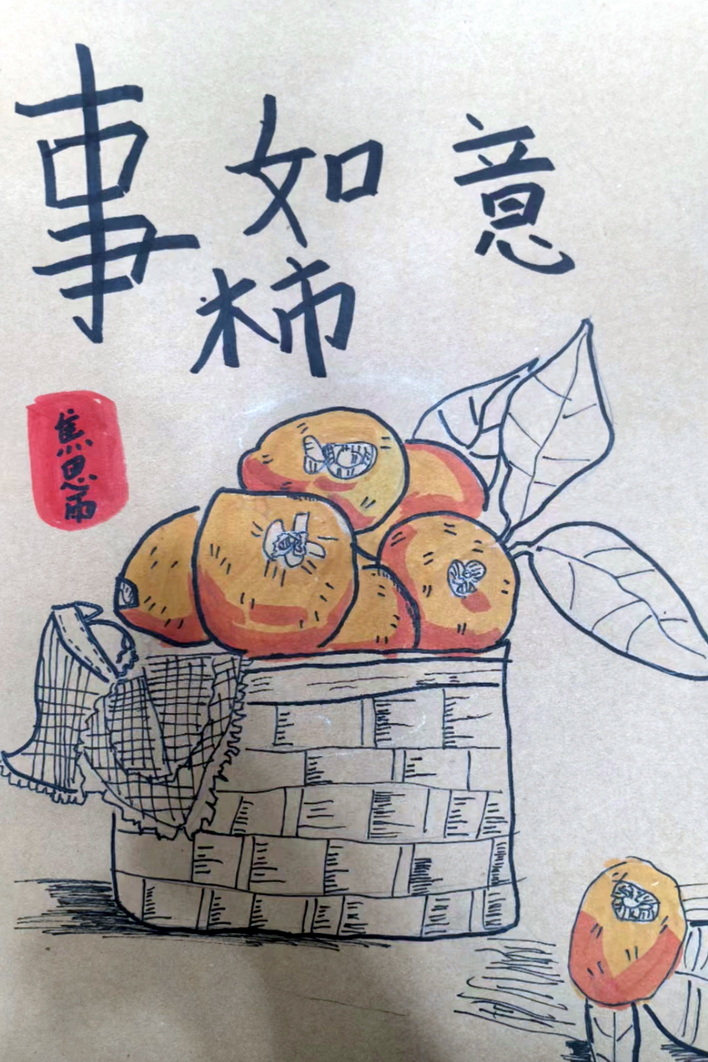 事如意
柿
焦思雨